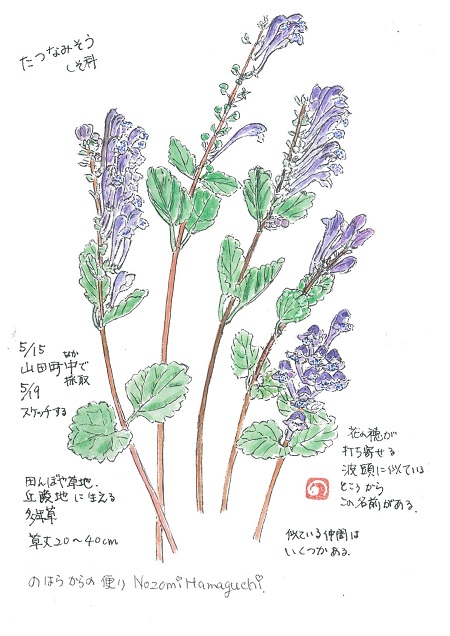 たつなみそう
しそ科
5/15
山田町中で
なか
採取
5/19
スケッチする
田んぼや草地、
丘陵地に生える
多年草
草丈20〜40cm
花の穂が
打ち寄せる
波頭に似ている
ところから
この名前がある。
似ている仲間は
いくつかある。
のはらからの便り Nozomi Hamaguchi